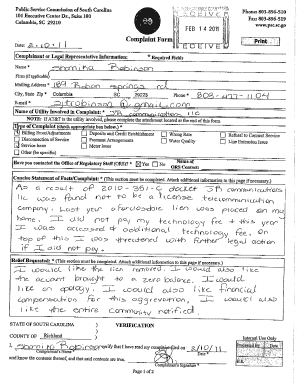 Public Service Commission of South Carolina
101 Executive Center Dr., Suite 100
Columbia, SC 29210
Phone: 803-896-5100
Fax: 803-896-5199
www.psc.sc.gov
Date: 2-10-11
Complaint Form
FEB 14 2011
RECEIVE
Print
Complainant or Legal Representative Information:
* Required Fields
Name * Shamika Robinson
Firm (if applicable)
Mailing Address * 189 springs rd
City, State Zip * Columbia SC 29223 Phone * 803-477-1104
E-mail
Name of Utility Involved in Complaint: * JR communications llc
Note: If AT&T is the utility involved, please complete the attachment located at the end of this form.
Type of Complaint (check appropriate box below.) *
Billing Error/Adjustments
Deposits and Credit Establishment
Wrong Rate
Refusal to Connect Service
Disconnection of Service
Payment Arrangements
Water Quality
Line Extension Issue
Service Issue
Meter Issue
Other (be specific)
Have you contacted the Office of Regulatory Staff (ORS)? * Yes No
Name of ORS Contact:
Concise Statement of Facts/Complaint: * (This section must be completed. Attach additional information to this page if necessary.)
As a result of 2010-361-C docket JR communications
llc was found not to be a license telecommunication
company. Last year a foreclosable lien was placed on my
home. I did not pay my technology fee + this year
I was accessed + additional technology fee. On
top of this I was threatened with further legal action
if I did not pay.
Relief Requested: * (This section must be completed. Attach additional information to this page if necessary.)
I would like the lien removed. I would also like
the account brought to a zero balance. I would
like an apology. I would also like financial
compensation for this aggravation. I would also
like the entire community notified.
STATE OF SOUTH CAROLINA
VERIFICATION
COUNTY OF Richland
Internal Use Only
I, Shamika Robinson verify that I have read my complaint filed on 2/10/11
Complainant's Name *
Date *
and know the contents thereof, and that said contents are true.
Complainant's Signature *
Page 1 of 2